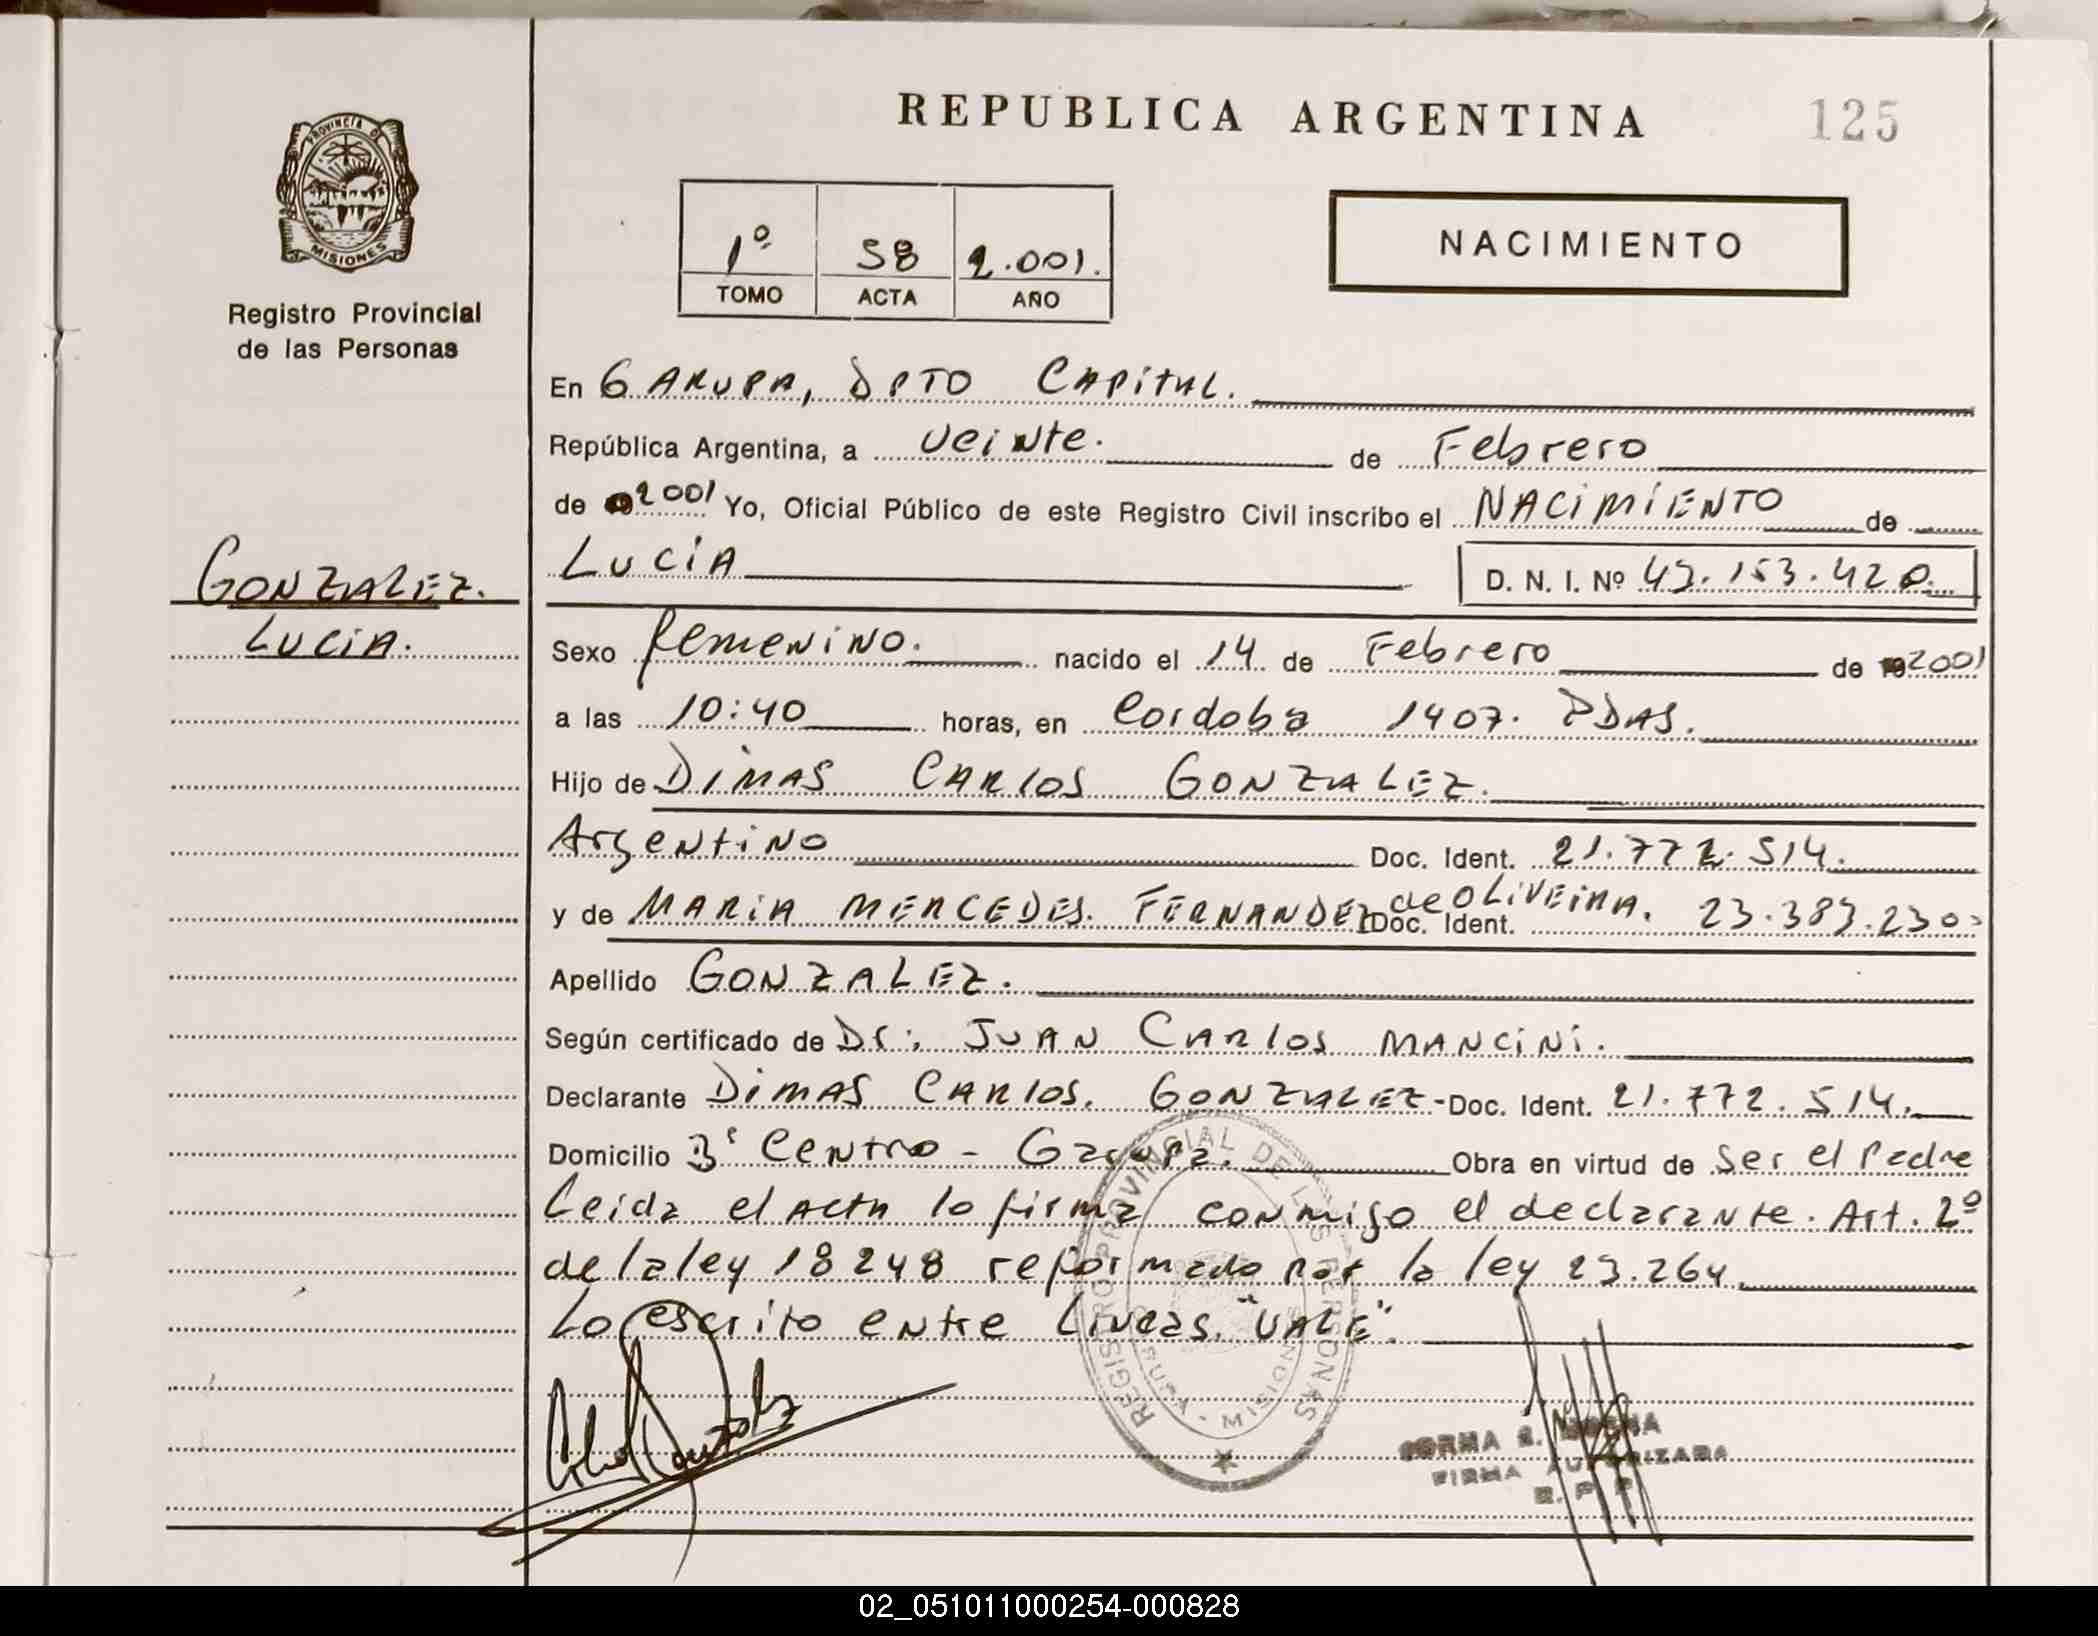 REPUBLICA ARGENTINA
125
PROVINCIA DE
MISIONES
Registro Provincial
de las Personas
1º 58 2.001.
TOMO ACTA AÑO
NACIMIENTO
En GARUPA, DPTO CAPITAL.
República Argentina, a veinte. de Febrero
de 2001 Yo, Oficial Público de este Registro Civil inscribo el NACIMIENTO de
LUCIA D. N. I. Nº 43.153.420.
GONZALEZ.
LUCIA.
Sexo femenino. nacido el 14 de Febrero de 2001
a las 10:40 horas, en Cordoba 1407. PDAS.
Hijo de DIMAS CARLOS GONZALEZ.
Argentino Doc. Ident. 21.772.514.
y de MARIA MERCEDES. FERNANDEZ de OLIVEIRA. Doc. Ident. 23.383.230.
Apellido GONZALEZ.
Según certificado de Dr: JUAN CARLOS MANCINI.
Declarante DIMAS CARLOS. GONZALEZ - Doc. Ident. 21.772.514.
Domicilio Bº Centro - Garupa. Obra en virtud de Ser el Padre
Leida el acta lo firma conmigo el declarante. Art. 2º
de la ley 18248 reformado por la ley 23.264.
Lo escrito entre Lineas. "VALE".
REGISTRO PROVINCIAL DE LAS PERSONAS
MISIONES
FIRMA AUTORIZADA
R. P. P.
02_051011000254-000828